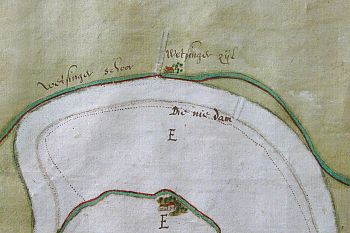 Wetsinger zijl
Wetsinger schoor
Die nie dam
E
E